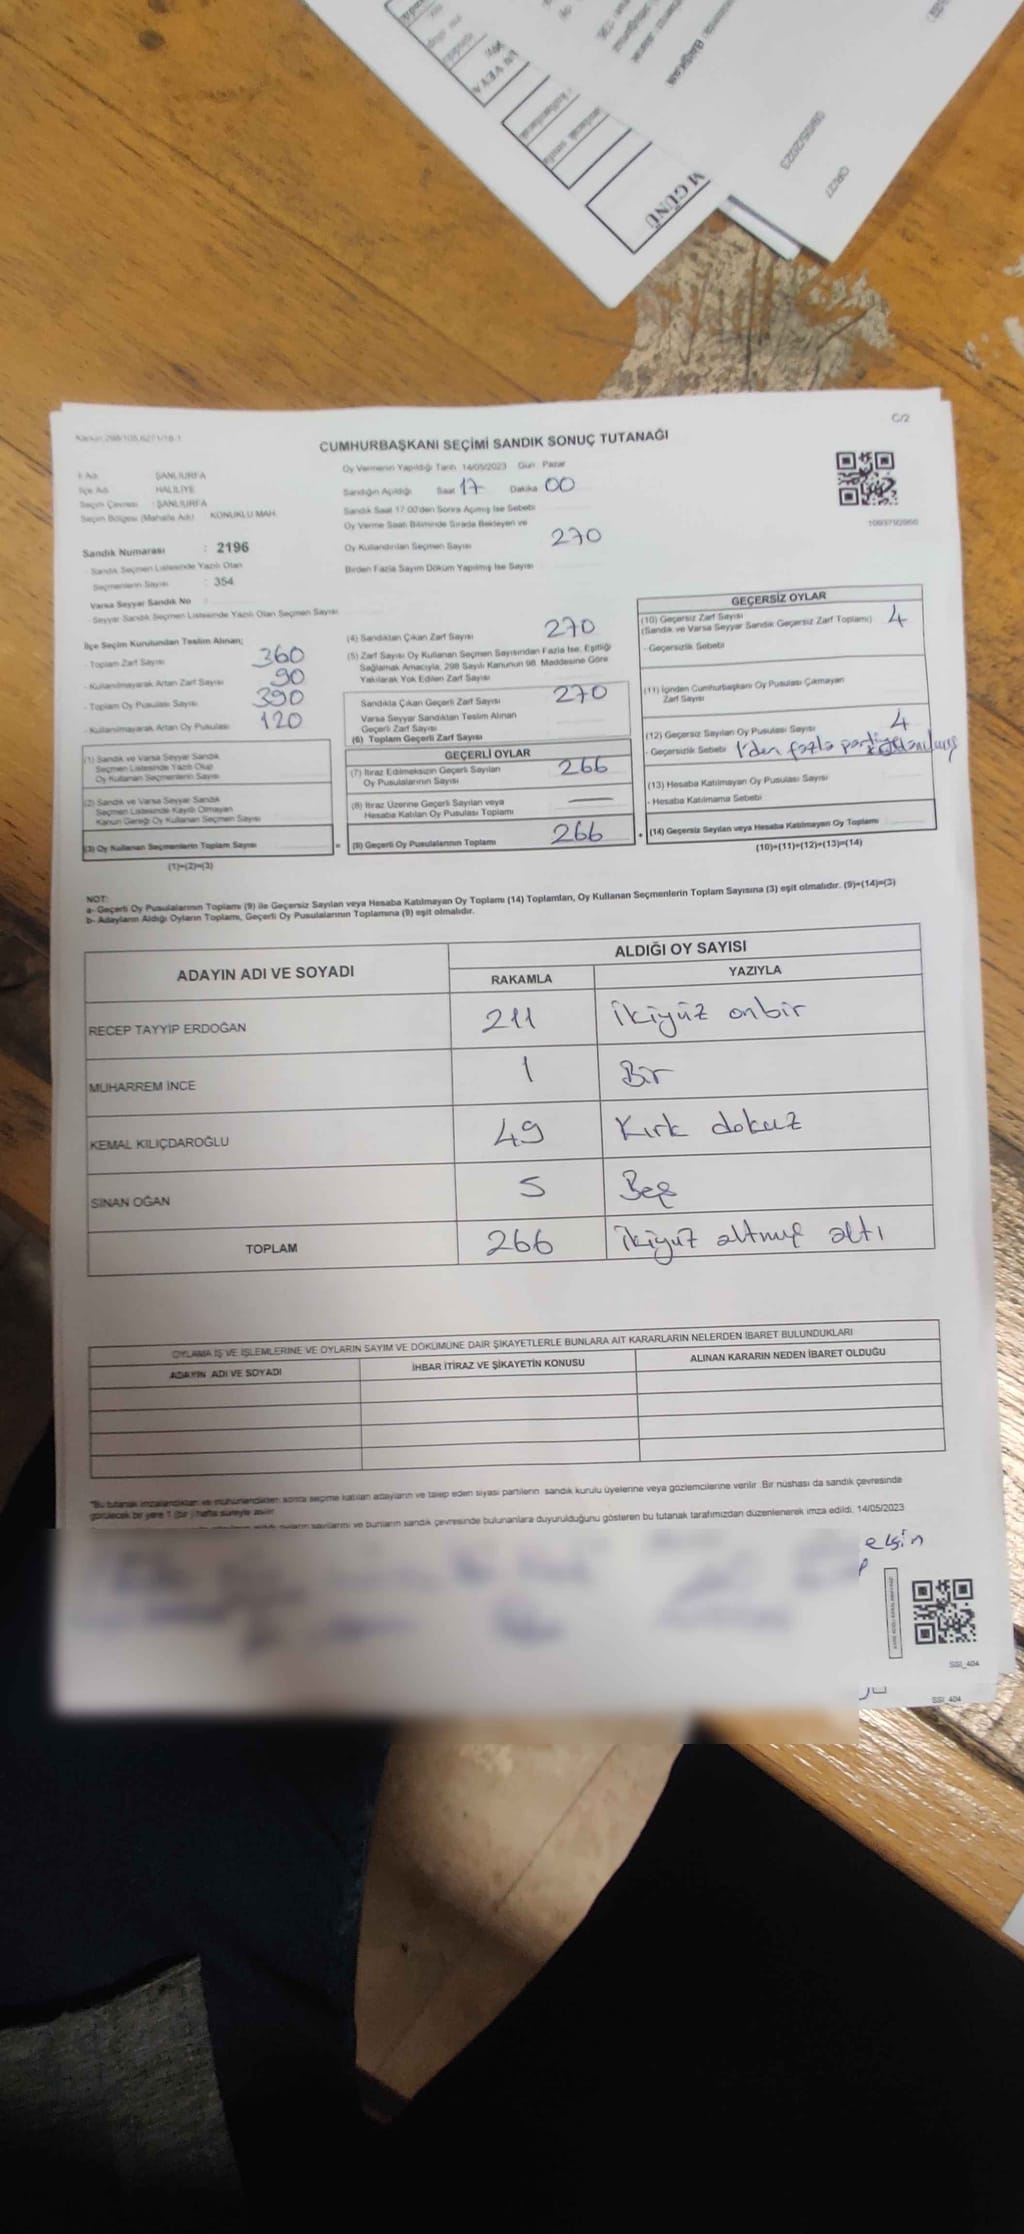 M GÜNÜ
UN VEYA
Başkan
09/05/2023
ÖR/27
C/2
CUMHURBAŞKANI SEÇİMİ SANDIK SONUÇ TUTANAĞI
İl Adı ŞANLIURFA
İlçe Adı HALİLİYE
Seçim Çevresi : ŞANLIURFA
Seçim Bölgesi (Mahalle Adı) : KONUKLU MAH.
Oy Vermenin Yapıldığı Tarih 14/05/2023 Gün Pazar
Sandığın Açıldığı Saat 17 Dakika 00
Sandık Saat 17:00'den Sonra Açılmış İse Sebebi
Oy Verme Saati Bitiminde Sırada Bekleyen ve
Oy Kullandırılan Seçmen Sayısı 270
Birden Fazla Sayım Döküm Yapılmış İse Sayısı
Sandık Numarası : 2196
- Sandık Seçmen Listesinde Yazılı Olan
Seçmenlerin Sayısı : 354
Varsa Seyyar Sandık No
- Seyyar Sandık Seçmen Listesinde Yazılı Olan Seçmen Sayısı
İlçe Seçim Kurulundan Teslim Alınan;
- Toplam Zarf Sayısı 360
- Kullanılmayarak Artan Zarf Sayısı 90
- Toplam Oy Pusulası Sayısı 390
- Kullanılmayarak Artan Oy Pusulası 120
(1) Sandık ve Varsa Seyyar Sandık
Seçmen Listesinde Yazılı Olup
Oy Kullanan Seçmenlerin Sayısı
(2) Sandık ve Varsa Seyyar Sandık
Seçmen Listesinde Kayıtlı Olmayan
Kanun Gereği Oy Kullanan Seçmen Sayısı
(3) Oy Kullanan Seçmenlerin Toplam Sayısı
(1)+(2)=(3)
(4) Sandıktan Çıkan Zarf Sayısı 270
(5) Zarf Sayısı Oy Kullanan Seçmen Sayısından Fazla İse, Eşitliği
Sağlamak Amacıyla, 298 Sayılı Kanunun 98. Maddesine Göre
Yakılarak Yok Edilen Zarf Sayısı
Sandıkta Çıkan Geçerli Zarf Sayısı 270
Varsa Seyyar Sandıktan Teslim Alınan
Geçerli Zarf Sayısı
(6) Toplam Geçerli Zarf Sayısı
GEÇERLİ OYLAR
(7) İtiraz Edilmeksizin Geçerli Sayılan
Oy Pusulalarının Sayısı 266
(8) İtiraz Üzerine Geçerli Sayılan veya
Hesaba Katılan Oy Pusulası Toplamı —
= (9) Geçerli Oy Pusulalarının Toplamı 266
GEÇERSİZ OYLAR
(10) Geçersiz Zarf Sayısı
(Sandık ve Varsa Seyyar Sandık Geçersiz Zarf Toplamı) 4
- Geçersizlik Sebebi
(11) İçinden Cumhurbaşkanı Oy Pusulası Çıkmayan
Zarf Sayısı
(12) Geçersiz Sayılan Oy Pusulası Sayısı 4
- Geçersizlik Sebebi 1'den fazla
(13) Hesaba Katılmayan Oy Pusulası Sayısı
- Hesaba Katılmama Sebebi
+ (14) Geçersiz Sayılan veya Hesaba Katılmayan Oy Toplamı
(10)+(11)+(12)+(13)=(14)
NOT:
a- Geçerli Oy Pusulalarının Toplamı (9) ile Geçersiz Sayılan veya Hesaba Katılmayan Oy Toplamı (14) Toplamları, Oy Kullanan Seçmenlerin Toplam Sayısına (3) eşit olmalıdır. (9)+(14)=(3)
b- Adayların Aldığı Oyların Toplamı, Geçerli Oy Pusulalarının Toplamına (9) eşit olmalıdır.
ADAYIN ADI VE SOYADI ALDIĞI OY SAYISI
RAKAMLA YAZIYLA
RECEP TAYYİP ERDOĞAN 211 ikiyüz onbir
MUHARREM İNCE 1 Bir
KEMAL KILIÇDAROĞLU 49 Kırk dokuz
SİNAN OĞAN 5 Beş
TOPLAM 266 ikiyüz altmış altı
OYLAMA İŞ VE İŞLEMLERİNE VE OYLARIN SAYIM VE DÖKÜMÜNE DAİR ŞİKAYETLERLE BUNLARA AİT KARARLARIN NELERDEN İBARET BULUNDUKLARI
ADAYIN ADI VE SOYADI İHBAR İTİRAZ VE ŞİKAYETİN KONUSU ALINAN KARARIN NEDEN İBARET OLDUĞU
"Bu tutanak imzalandıktan ve mühürlendikten sonra seçime katılan adayların ve talep eden siyasi partilerin sandık kurulu üyelerine veya gözlemcilerine verilir. Bir nüshası da sandık çevresinde
görülecek bir yere 1 (bir) hafta süreyle asılır.
sayılarını ve bunların sandık çevresinde bulunanlara duyurulduğunu gösteren bu tutanak tarafımızdan düzenlenerek imza edildi. 14/05/2023
elgin
SSI_404
SSI_404